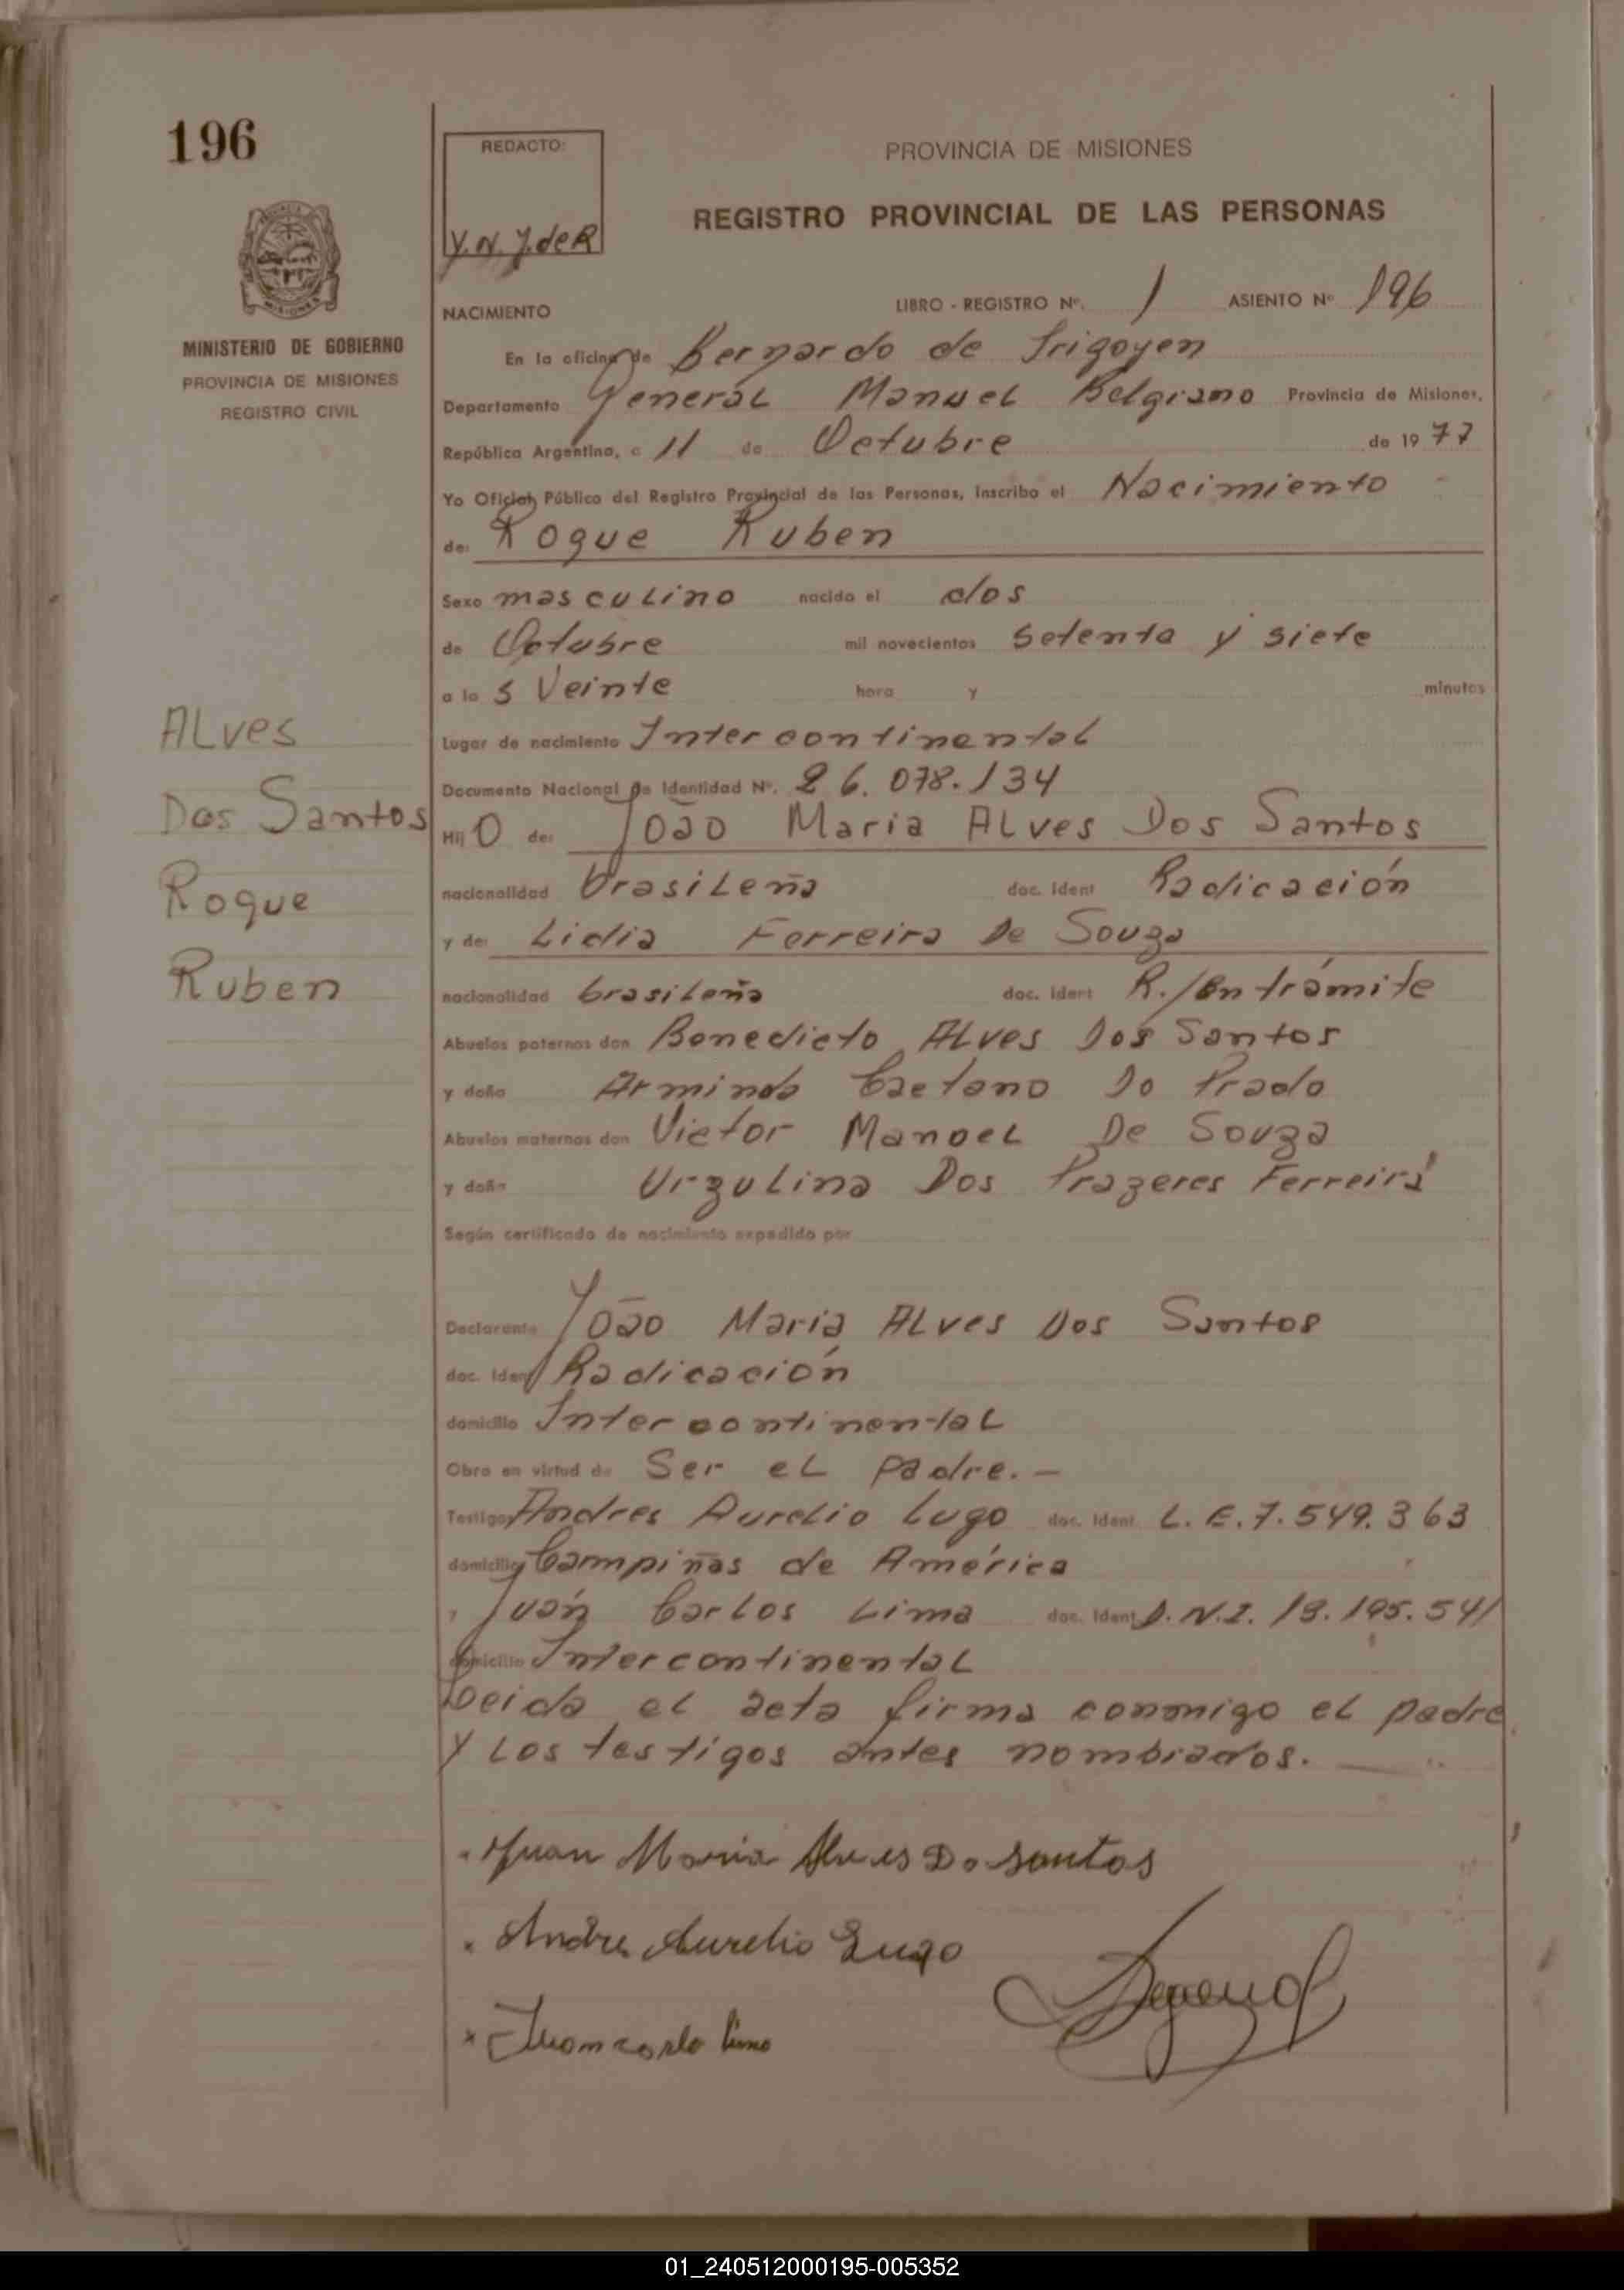 196
REDACTO:
Y.N.Y.deR
PROVINCIA DE MISIONES
REGISTRO PROVINCIAL DE LAS PERSONAS
MISIONES
MINISTERIO DE GOBIERNO
PROVINCIA DE MISIONES
REGISTRO CIVIL
NACIMIENTO LIBRO - REGISTRO Nº. 1 ASIENTO Nº 196
En la oficina de Bernardo de Irigoyen
Departamento General Manuel Belgrano Provincia de Misiones,
República Argentina, a 11 de Octubre de 1977
Yo Oficial Público del Registro Provincial de las Personas, inscribo el Nacimiento
de: Roque Ruben
Sexo masculino nacido el dos
de Octubre mil novecientos setenta y siete
a las Veinte hora y minutos
Lugar de nacimiento Intercontinental
Documento Nacional de Identidad Nº. 26.078.134
Hijo de: João Maria ALves Dos Santos
nacionalidad brasileña doc. Ident Radicación
y de: Lidia Ferreira De Souza
nacionalidad brasileña doc. Ident R./En trámite
Abuelos paternos don Benedicto ALves Dos Santos
y doña Arminda Caetano Do Prado
Abuelos maternos don Victor Manoel De Souza
y doña Urzulina Dos Prazeres Ferreira
Según certificado de nacimiento expedido por
ALves
Dos Santos
Roque
Ruben
Declarante João Maria ALves Dos Santos
doc. Ident Radicación
domicilio Intercontinental
Obra en virtud de Ser el padre.-
Testigos Andres Aurelio Lugo doc. Ident. L.E.7.549.363
domicilio Campiñas de América
y Juán Carlos Lima doc. Ident D.N.I. 13.195.541
domicilio Intercontinental
Leida el acta firma conmigo el padre
y los testigos antes nombrados.
Juan Maria Alves Do santos
Andres Aurelio Lugo
Juan carlo lima
01_240512000195-005352